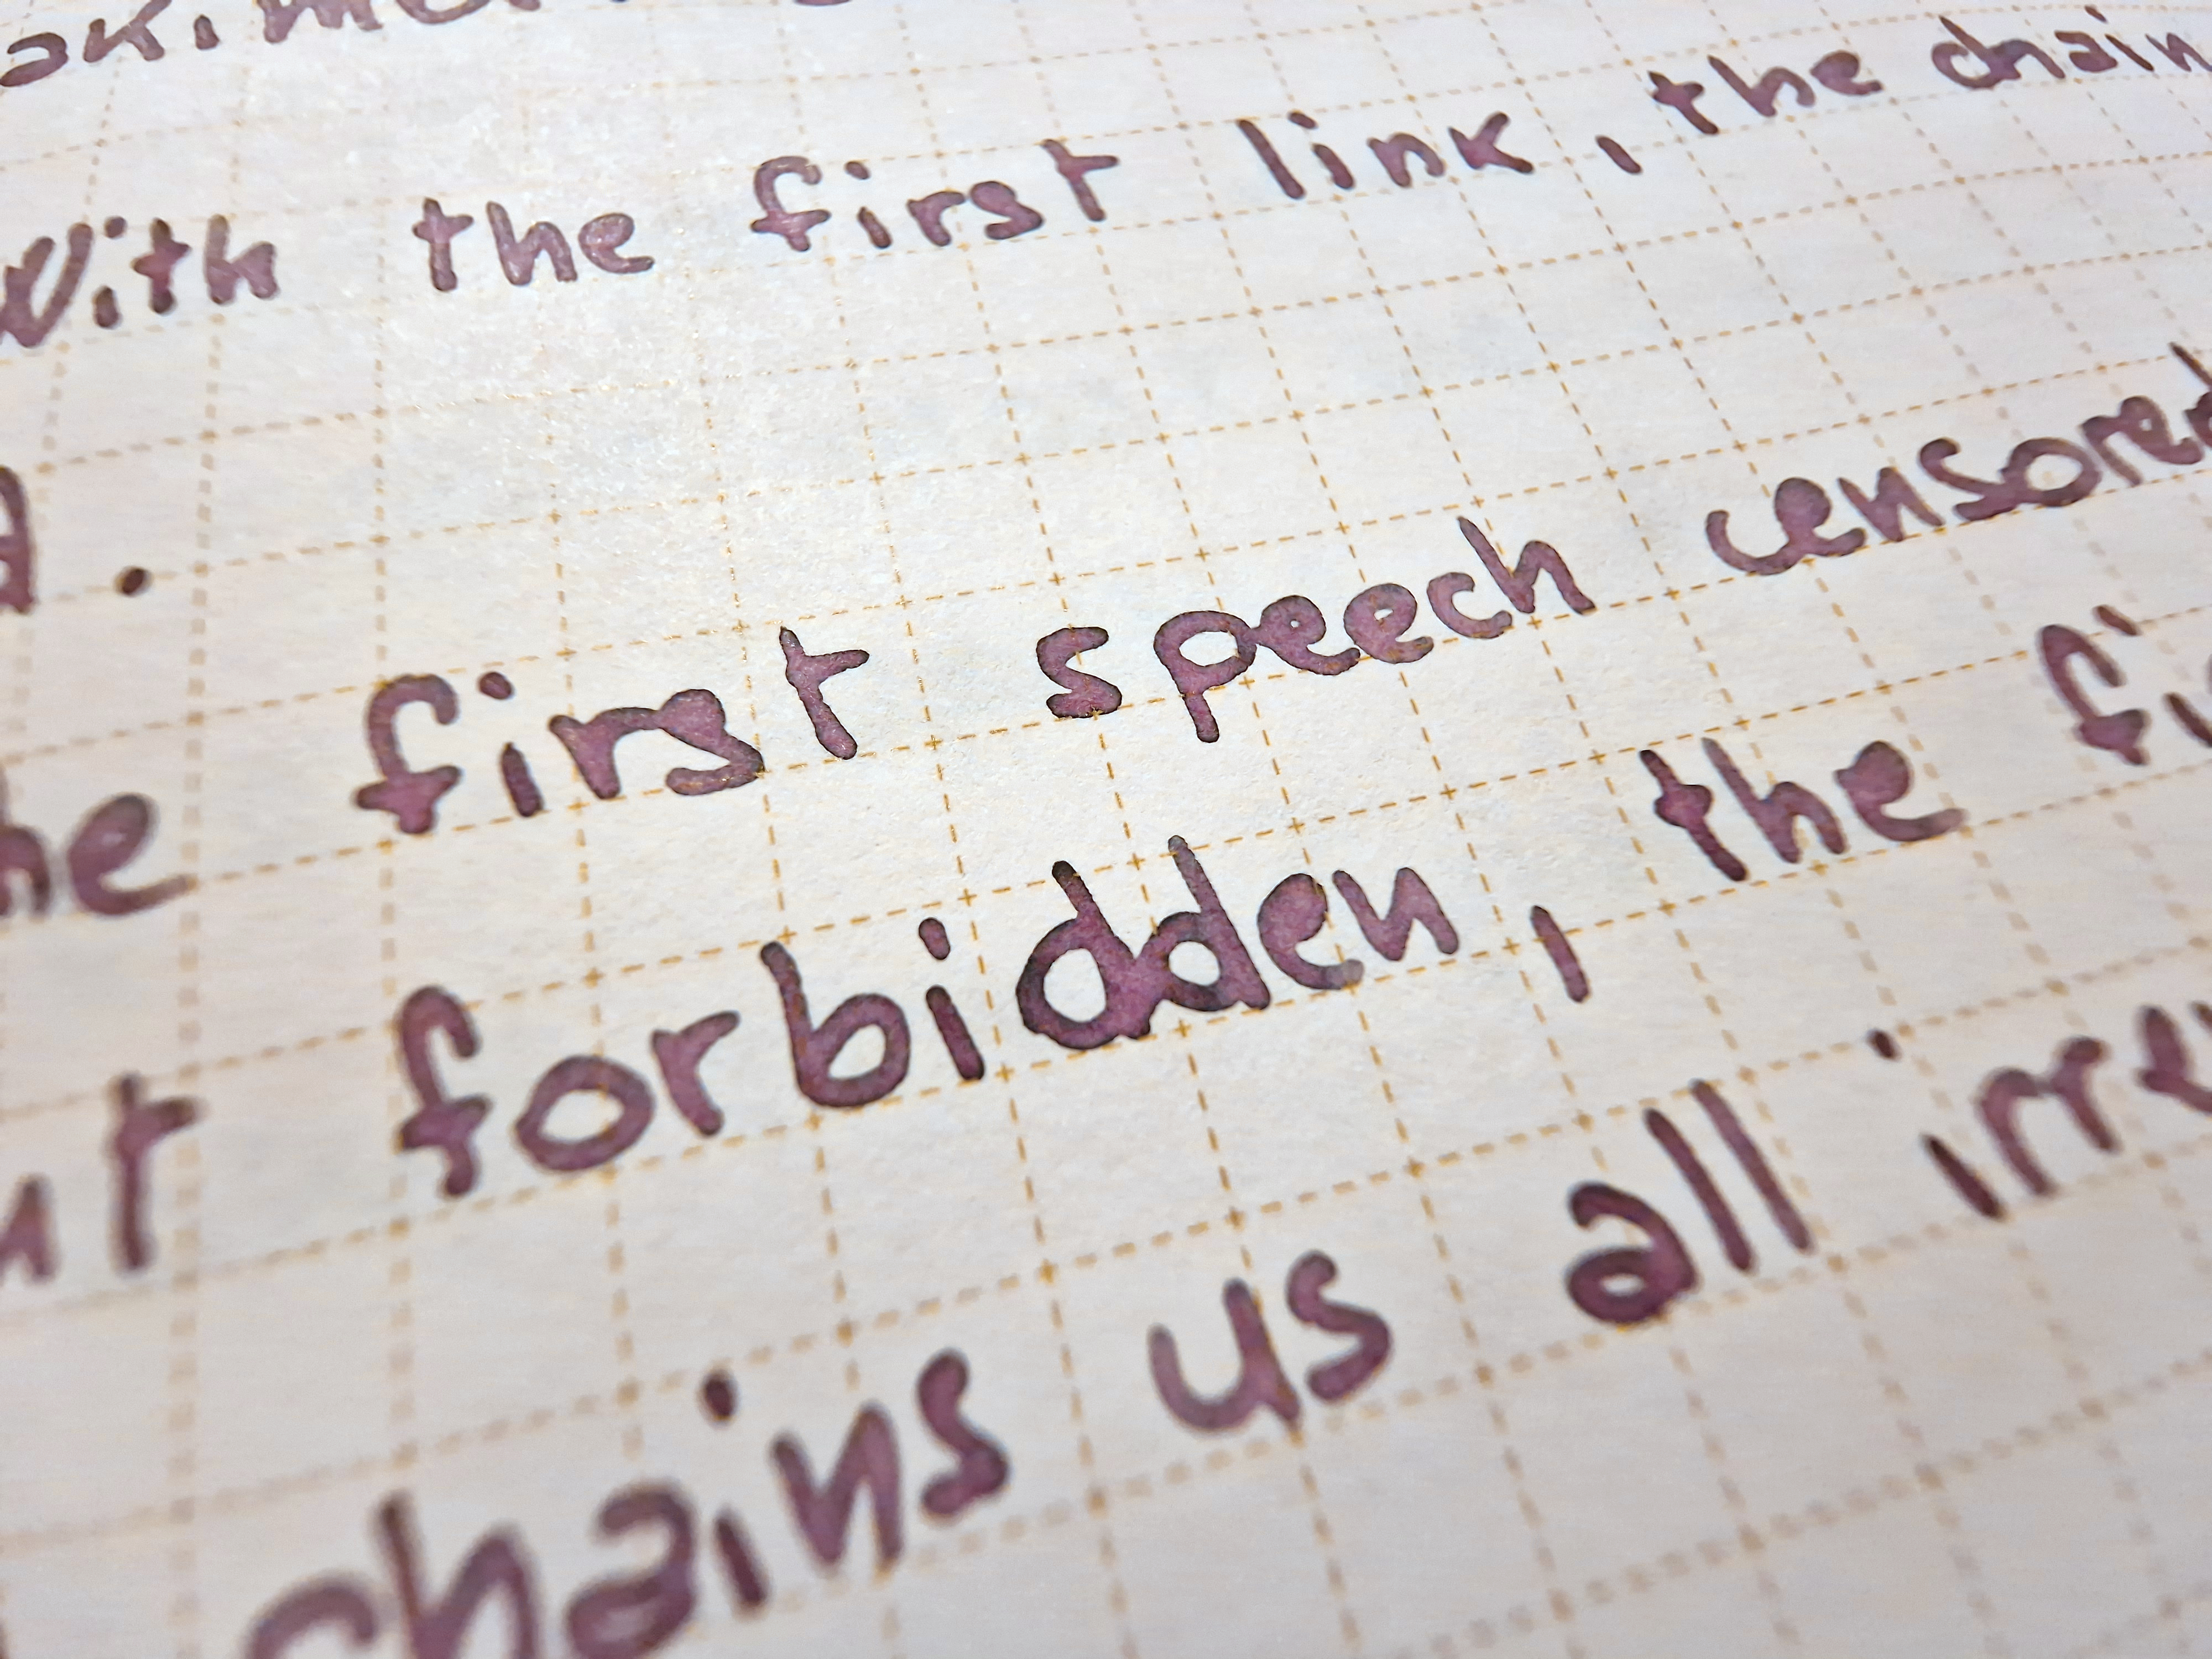 With the first link, the chain
.
first speech censored
forbidden, the
chains us all